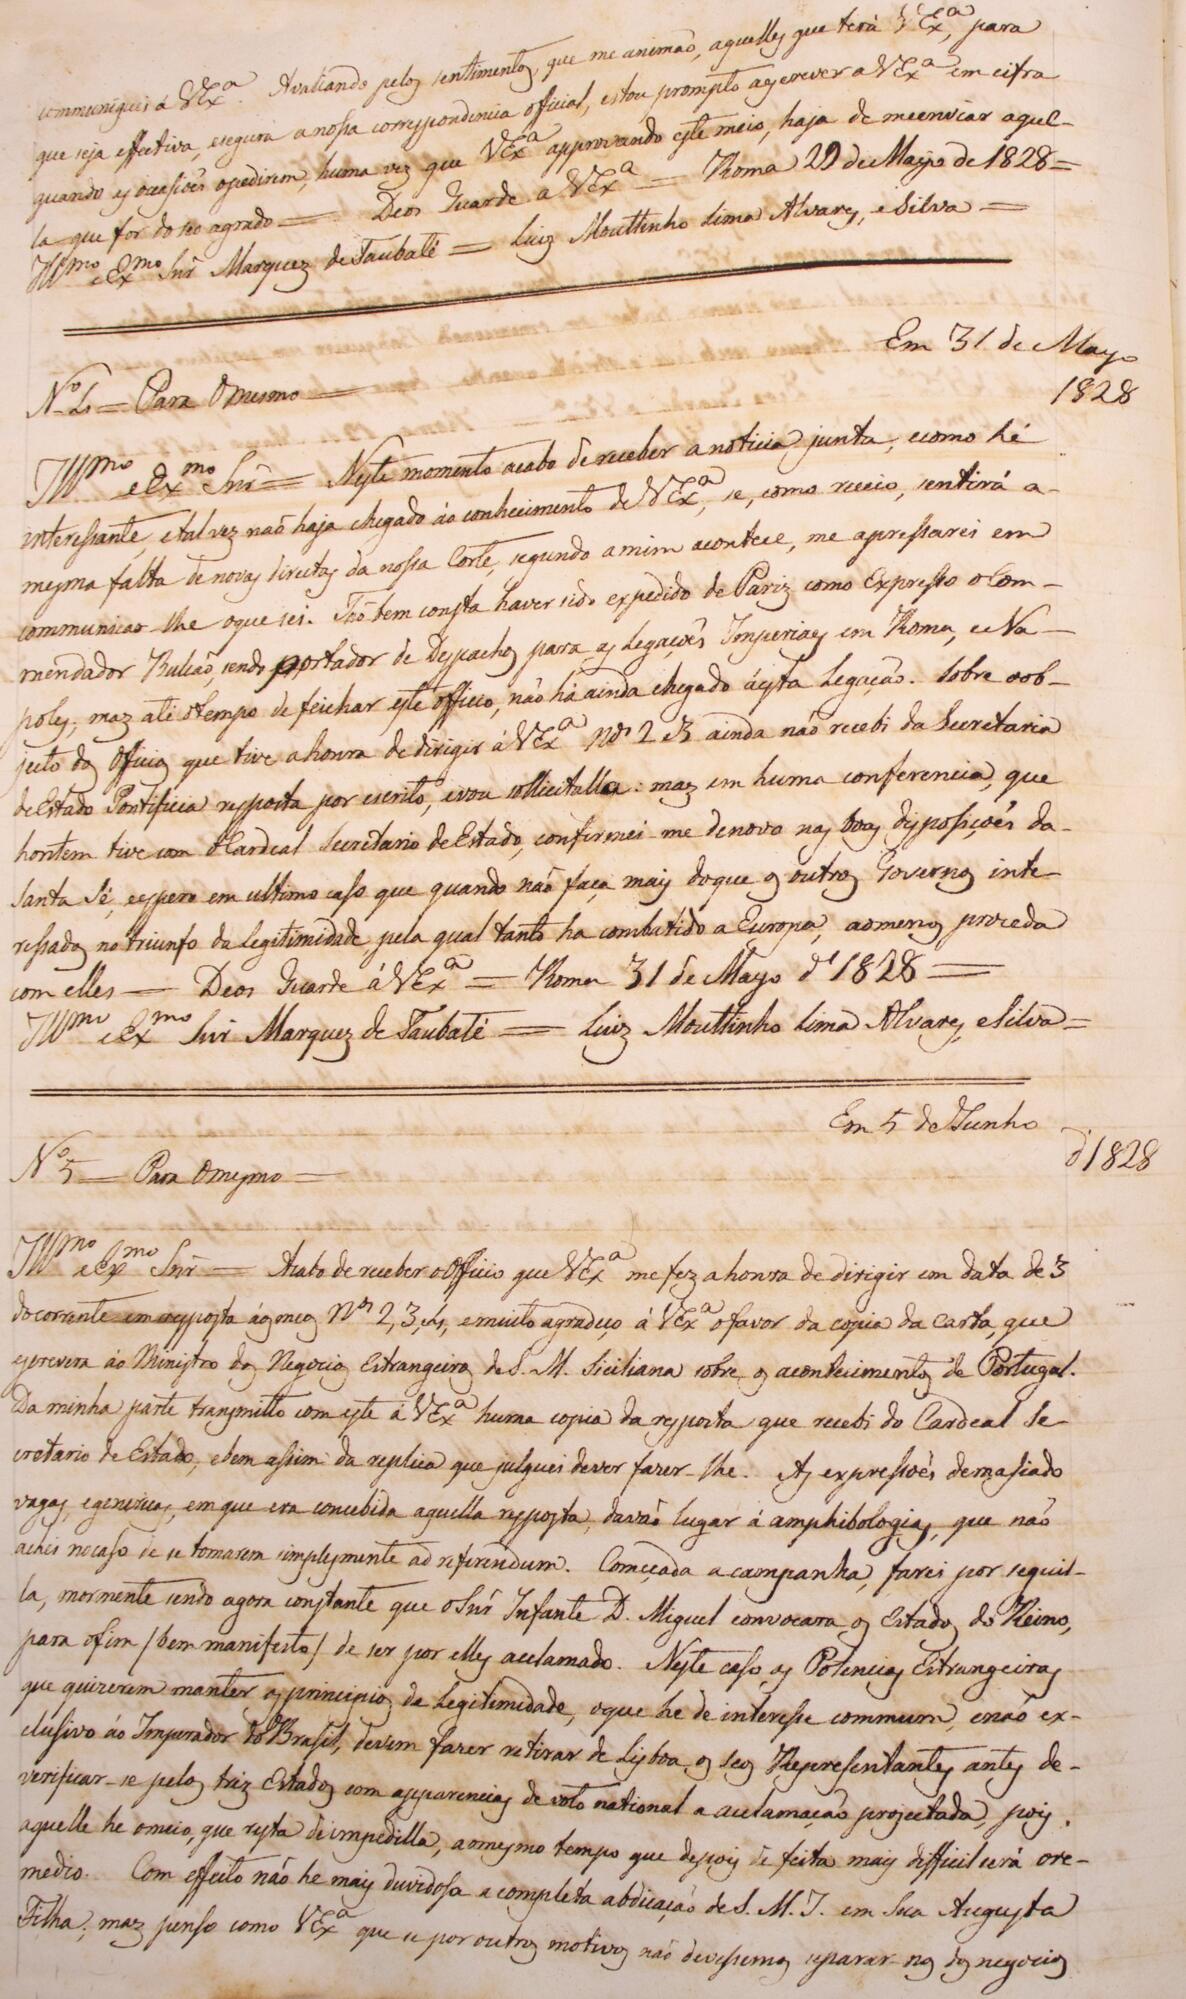 communiquei á VExª. Avaliando pelos sentimentos, que me animão, aquelles que terá VExª, para
que seja effectiva, e segura a nossa correspondencia official, estou prompto a escrever a VExª em cifra
quando as occasiões o pedirem, huma vez que VExª approvando este meio, haja de me enviar aquel-
la que for do seo agrado = Deos Guarde a VExª = Roma 29 de Mayo de 1828 =
Illmo e Exmo Snr Marquez de Taubaté = Luiz Mouttinho Lima Alvares, e Silva =
Em 31 de Mayo
1828
Nº 4 = Para O mesmo =
Illmo e Exmo Snr = Neste momento acabo de receber a noticia junta, e como hé
interessante, e tal vez não haja chegado áo conhecimento de VExª, se, como receio, sentirá a-
mesma falta de novas directas da nossa Corte, segundo a mim acontece, me apressarei em
communicar-lhe o que sei. Tão bem consta haver sido expedido de Pariz como Expresso o Com-
mendador Bulcão, sendo portador de Despachos para as Legações Imperiaes em Roma, e Na-
poles; maz até ó tempo de feichar este officio, não há ainda chegado á esta Legação. Sobre o ob-
jecto dos Officios que tive a honra de dirigir á VExª Nos 2 e 3 ainda não recebi da Secretaria
de Estado Pontificia resposta por escrito, e vou sollicitalla: maz em huma conferencia, que
hontem tive com o Cardeal Secretario de Estado, confirmei-me de novo nas boas disposições da-
Santa Sé, e espero em ultimo caso que quando não faça mais do que os outros Governos inte-
ressados no triunfo da legitimidade, pela qual tanto ha combatido a Europa, ao menos proceda
com elles = Deos Guarde á VExª = Roma 31 de Mayo d' 1828 =
Illmo e Exmo Snr Marquez de Taubaté = Luiz Mouttinho Lima Alvares, e Silva =
Em 5 de Junho
d' 1828
Nº 5 = Para O mesmo =
Illmo e Exmo Snr = Acabo de receber o Officio que VExª me fez a honra de dirigir em data de 3
do corrente em resposta áos meos Nos 2, 3, e 4, e muito agradeço á VExª o favor da copia da carta, que
escrevera áo Ministro dos Negocios Estrangeiros de S. M. Siciliana sobre os acontecimentos de Portugal.
Da minha parte transmitto com este á VExª huma copia da resposta que recebi do Cardeal Se-
cretario de Estado, e bem assim da replica que julguei dever fazer-lhe. As expressoês demasiado
vagas, e genericas, em que era concebida aquella resposta, davão lugar á amphibologias, que não
achei no caso de se tomarem simplesmente ad referendum. Começada a campanha, farei por seguil-
la, mormente sendo agora constante que o Snr Infante D. Miguel convocara os Estados do Reino,
para o fim / bem manifesto / de ser por elles acclamado. Neste caso as Potencias Estrangeiras
que quizerem manter os principios da Legitimidade, o que he de interesse commum, e não ex-
clusivo áo Imperador do Brasil, devem fazer retirar de Lisboa os seos Representantes antes de-
verificar-se pelos trez Estados com apparencias de voto national a acclamação projectada, pois,
aquelle he o meio, que resta de impedilla, ao mesmo tempo que depois de feita mais difficil será o re-
medio. Com effeito não he mais duvidosa a completa abdicação de S. M. I. em Sua Augusta
Filha; maz penso como VExª que se por outros motivos não devessemos separar-nos dos negocios